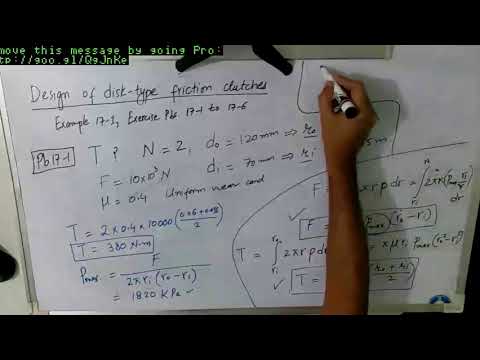 move this message by going Pro:
tp://goo.gl/QgJnKe
Design of disk-type friction clutches
Example 17-1, Exercise Pbs. 17-1 to 17-6
Pb 17-1 T ? N = 2, d₀ = 120 mm ⇒ r₀
F = 10×10³ N dᵢ = 70 mm ⇒ rᵢ
μ = 0.4 Uniform wear cond
T = 2×0.4×10000 (
2
)
T = 380 N·m
Pmax = F / 2πrᵢ(r₀-rᵢ)
= 1820 KPa ✓
5m
F = ∫ 2πrpdr = ∫ 2πr(Pmax rᵢ/r) dr
✓ F = Pmax (r₀-rᵢ)
T = ∫ 2πrpdr = πμrᵢ Pmax (r₀²-rᵢ²)
✓ T = r₀+rᵢ / 2